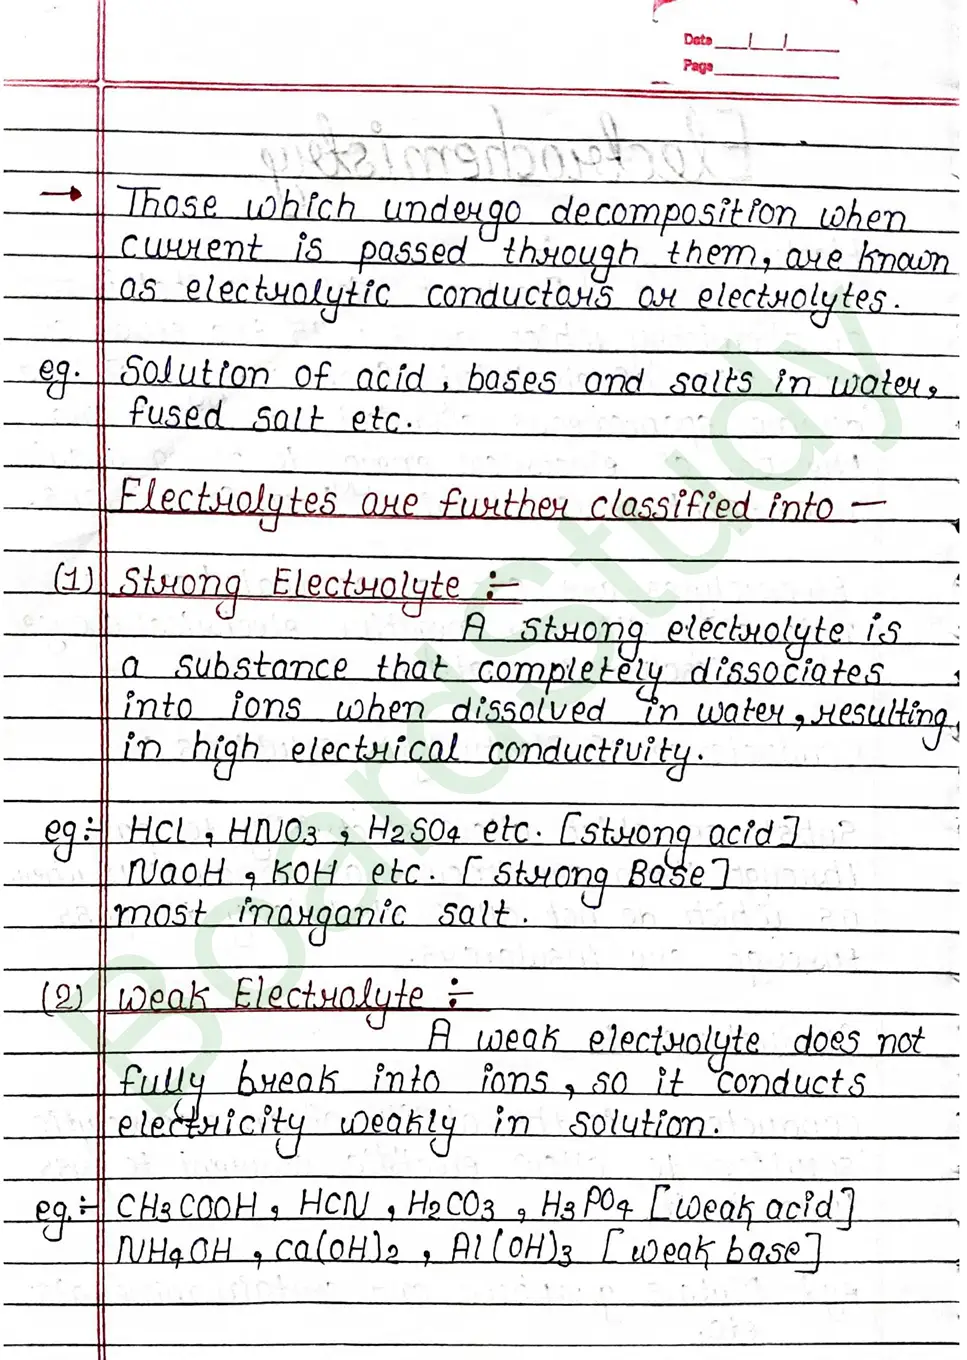 Date __/__/____
Page ________
Electrochemistry
→ Those which undergo decomposition when
current is passed through them, are known
as electrolytic conductors or electrolytes.
eg. Solution of acid, bases and salts in water,
fused salt etc.
Electrolytes are further classified into –
(1) Strong Electrolyte :-
A strong electrolyte is
a substance that completely dissociates
into ions when dissolved in water, resulting
in high electrical conductivity.
eg:- HCl, HNO3, H2SO4 etc. [strong acid]
NaOH, KOH etc. [strong Base]
most inorganic salt.
(2) Weak Electrolyte :-
A weak electrolyte does not
fully break into ions, so it conducts
electricity weakly in solution.
eg.:- CH3COOH, HCN, H2CO3, H3PO4 [weak acid]
NH4OH, Ca(OH)2, Al(OH)3 [weak base]
BoardStudy